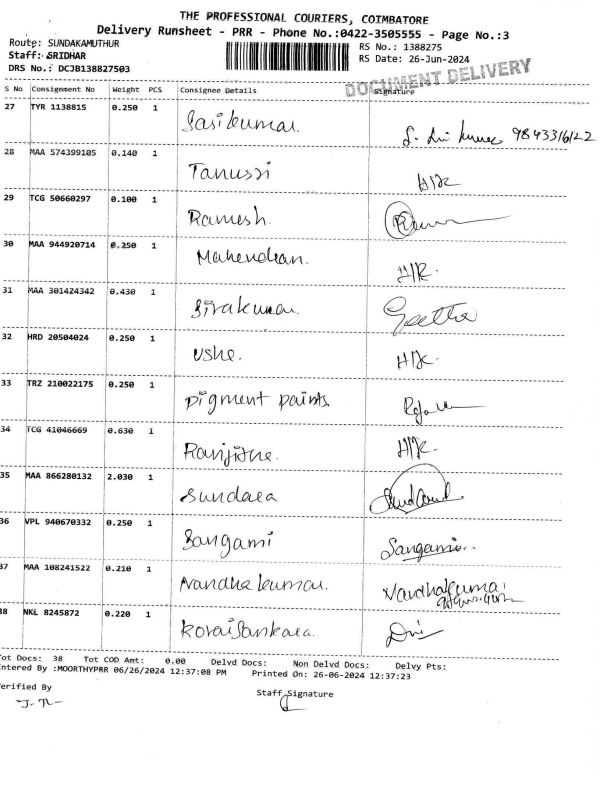 THE PROFESSIONAL COURIERS, COIMBATORE
Delivery Runsheet - PRR - Phone No.:0422-3505555 - Page No.:3
Route: SUNDAKAMUTHUR RS No.: 1388275
Staff: SRIDHAR RS Date: 26-Jun-2024
DRS No.: DCJB138827503
DOCUMENT DELIVERY
S No Consignment No Weight PCS Consignee Details Signature
27 TYR 1138815 0.250 1 Sasikumar. 9843316122
28 MAA 574399105 0.140 1 Tanussi H/R
29 TCG 50660297 0.100 1 Ramesh.
30 MAA 944920714 0.250 1 Mahendran. H/R.
31 MAA 301424342 0.430 1 Sivakumar. Geetha
32 HRD 20504024 0.250 1 Usha. H/R.
33 TRZ 210022175 0.250 1 Pigment paints.
34 TCG 41046669 0.630 1 Ranjitha. H/R.
35 MAA 866280132 2.030 1 Sundara
36 VPL 940670332 0.250 1 Sangami Sangami..
37 MAA 108241522 0.210 1 Nandha kumar. Nandhakumar
38 NKL 8245872 0.220 1 Kovaisankara.
Tot Docs: 38 Tot COD Amt: 0.00 Delvd Docs: Non Delvd Docs: Delvy Pts:
Entered By :MOORTHYPRR 06/26/2024 12:37:08 PM Printed On: 26-06-2024 12:37:23
Verified By Staff Signature